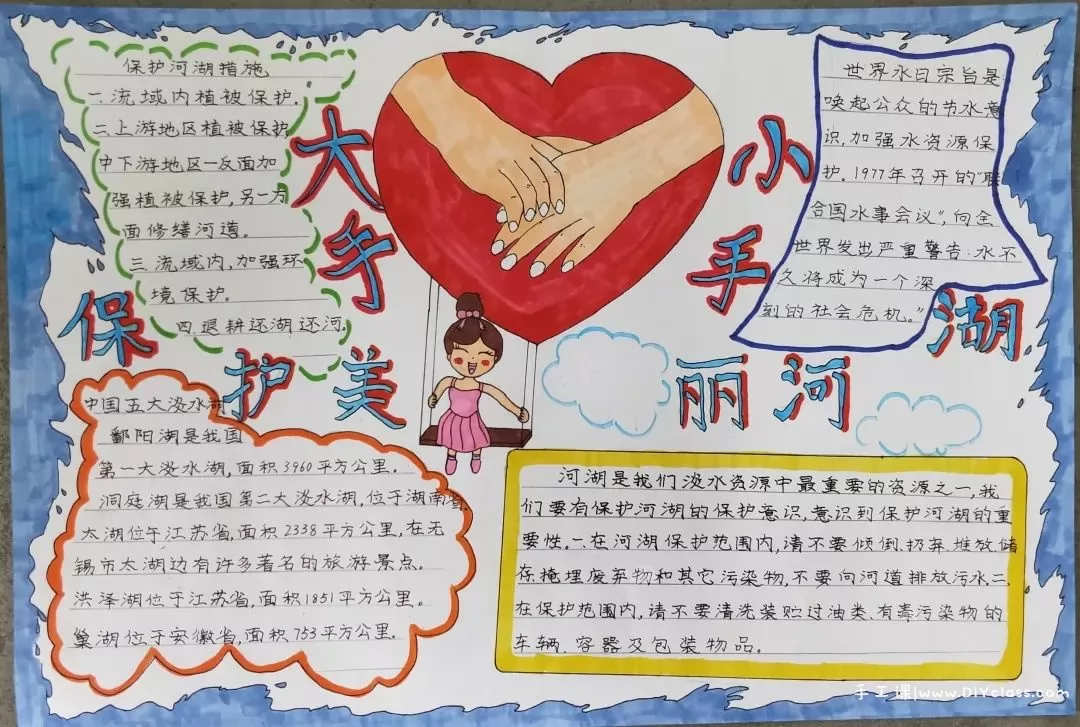 大手
小手
保护美丽河湖
保护河湖措施
一.流域内植被保护.
二.上游地区植被保护
中下游地区一反面加
强植被保护,另一方
面修缮河道。
三.流域内,加强环
境保护。
四.退耕还湖还河.
世界水日宗旨是
唤起公众的节水意
识,加强水资源保
护。1977年召开的"联
合国水事会议",向全
世界发出严重警告:水不
久将成为一个深
刻的社会危机。"
中国五大淡水湖
鄱阳湖是我国
第一大淡水湖,面积3960平方公里.
洞庭湖是我国第二大淡水湖,位于湖南省.
太湖位于江苏省,面积2338平方公里,在无
锡市太湖边有许多著名的旅游景点。
洪泽湖位于江苏省,面积1851平方公里。
巢湖位于安徽省,面积753平方公里.
河湖是我们淡水资源中最重要的资源之一,我
们要有保护河湖的保护意识,意识到保护河湖的重
要性.一.在河湖保护范围内,请不要倾倒.扔弃.堆放.储
存.掩埋废弃物和其它污染物,不要向河道排放污水.二.
在保护范围内,请不要清洗装贮过油类、有毒污染物的
车辆.容器及包装物品。
手工课|www.DIYclass.com